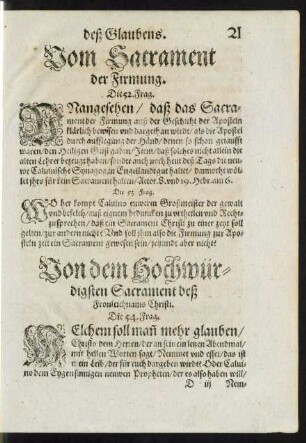 deß Glaubens. 21
Vom Sacrament
der Firmung.
Die 52. Frag.
UNangesehen / daß das Sacra-
ment der Firmung auß der Geschicht der Aposteln
klärlich bewisen vnd dargethan wirdt / als die Apostel
durch aufflegung der Händ / denen so schon getaufft
waren / den Heiligen Geist gaben / Item / daß solches nicht allein die
alten Lehrer bezeugt haben / sonder auch noch heut deß Tags die newe
we Caluinische Synagog in Engellandt gut haltet / dannocht wöl-
let jhrs für kein Sacrament halten / Actor. 8. vnd 19. Hebr. am 6.
Die 53. Frag.
WO her kompt Caluino ewerem Großmeister der gewalt
vnd befelch / auß eignem beduncken zu vrtheilen vnd Rechts
zusprechen / daß ein Sacrament Christi zu einer zeyt soll
gelten / zur andern nicht? Vnd soll jhm also die Firmung zur Apo-
steln zeit ein Sacrament gewesen sein / jetzundt aber nicht?
Von dem Hochwür-
digsten Sacrament deß
Fronleichnams Christi.
Die 54. Frag.
WElchem soll mañ mehr glauben /
Christo dem Herren / der an seinem letzten Abendmal /
mit hellen Worten sagt / Nemmet vnd esset / das ist
mein Leib / der für euch dargeben wirdt? Oder Calui-
no dem Eygensinnigen newen Propheten / der es also haben will /
D iij Nem-